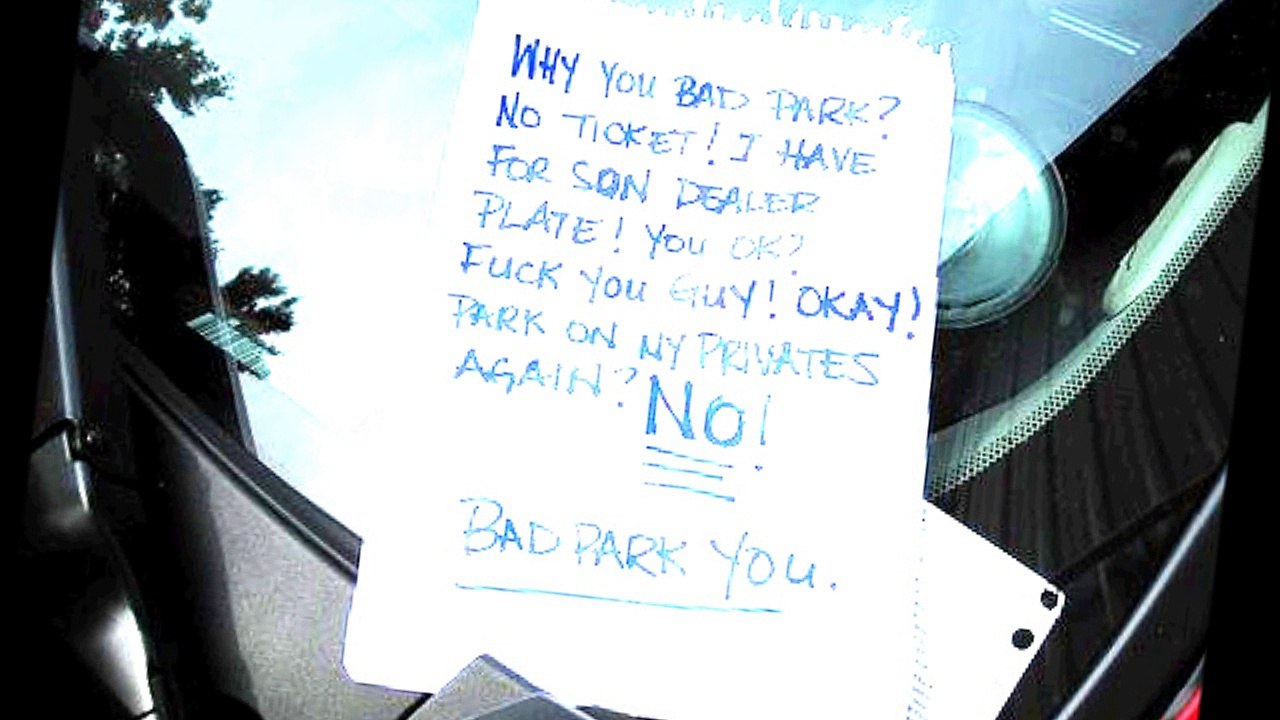 WHY YOU BAD PARK?
NO TICKET! I HAVE
FOR SON DEALER
PLATE! YOU OK?
FUCK YOU GUY! OKAY!
PARK ON MY PRIVATES
AGAIN? NO!
BAD PARK YOU.